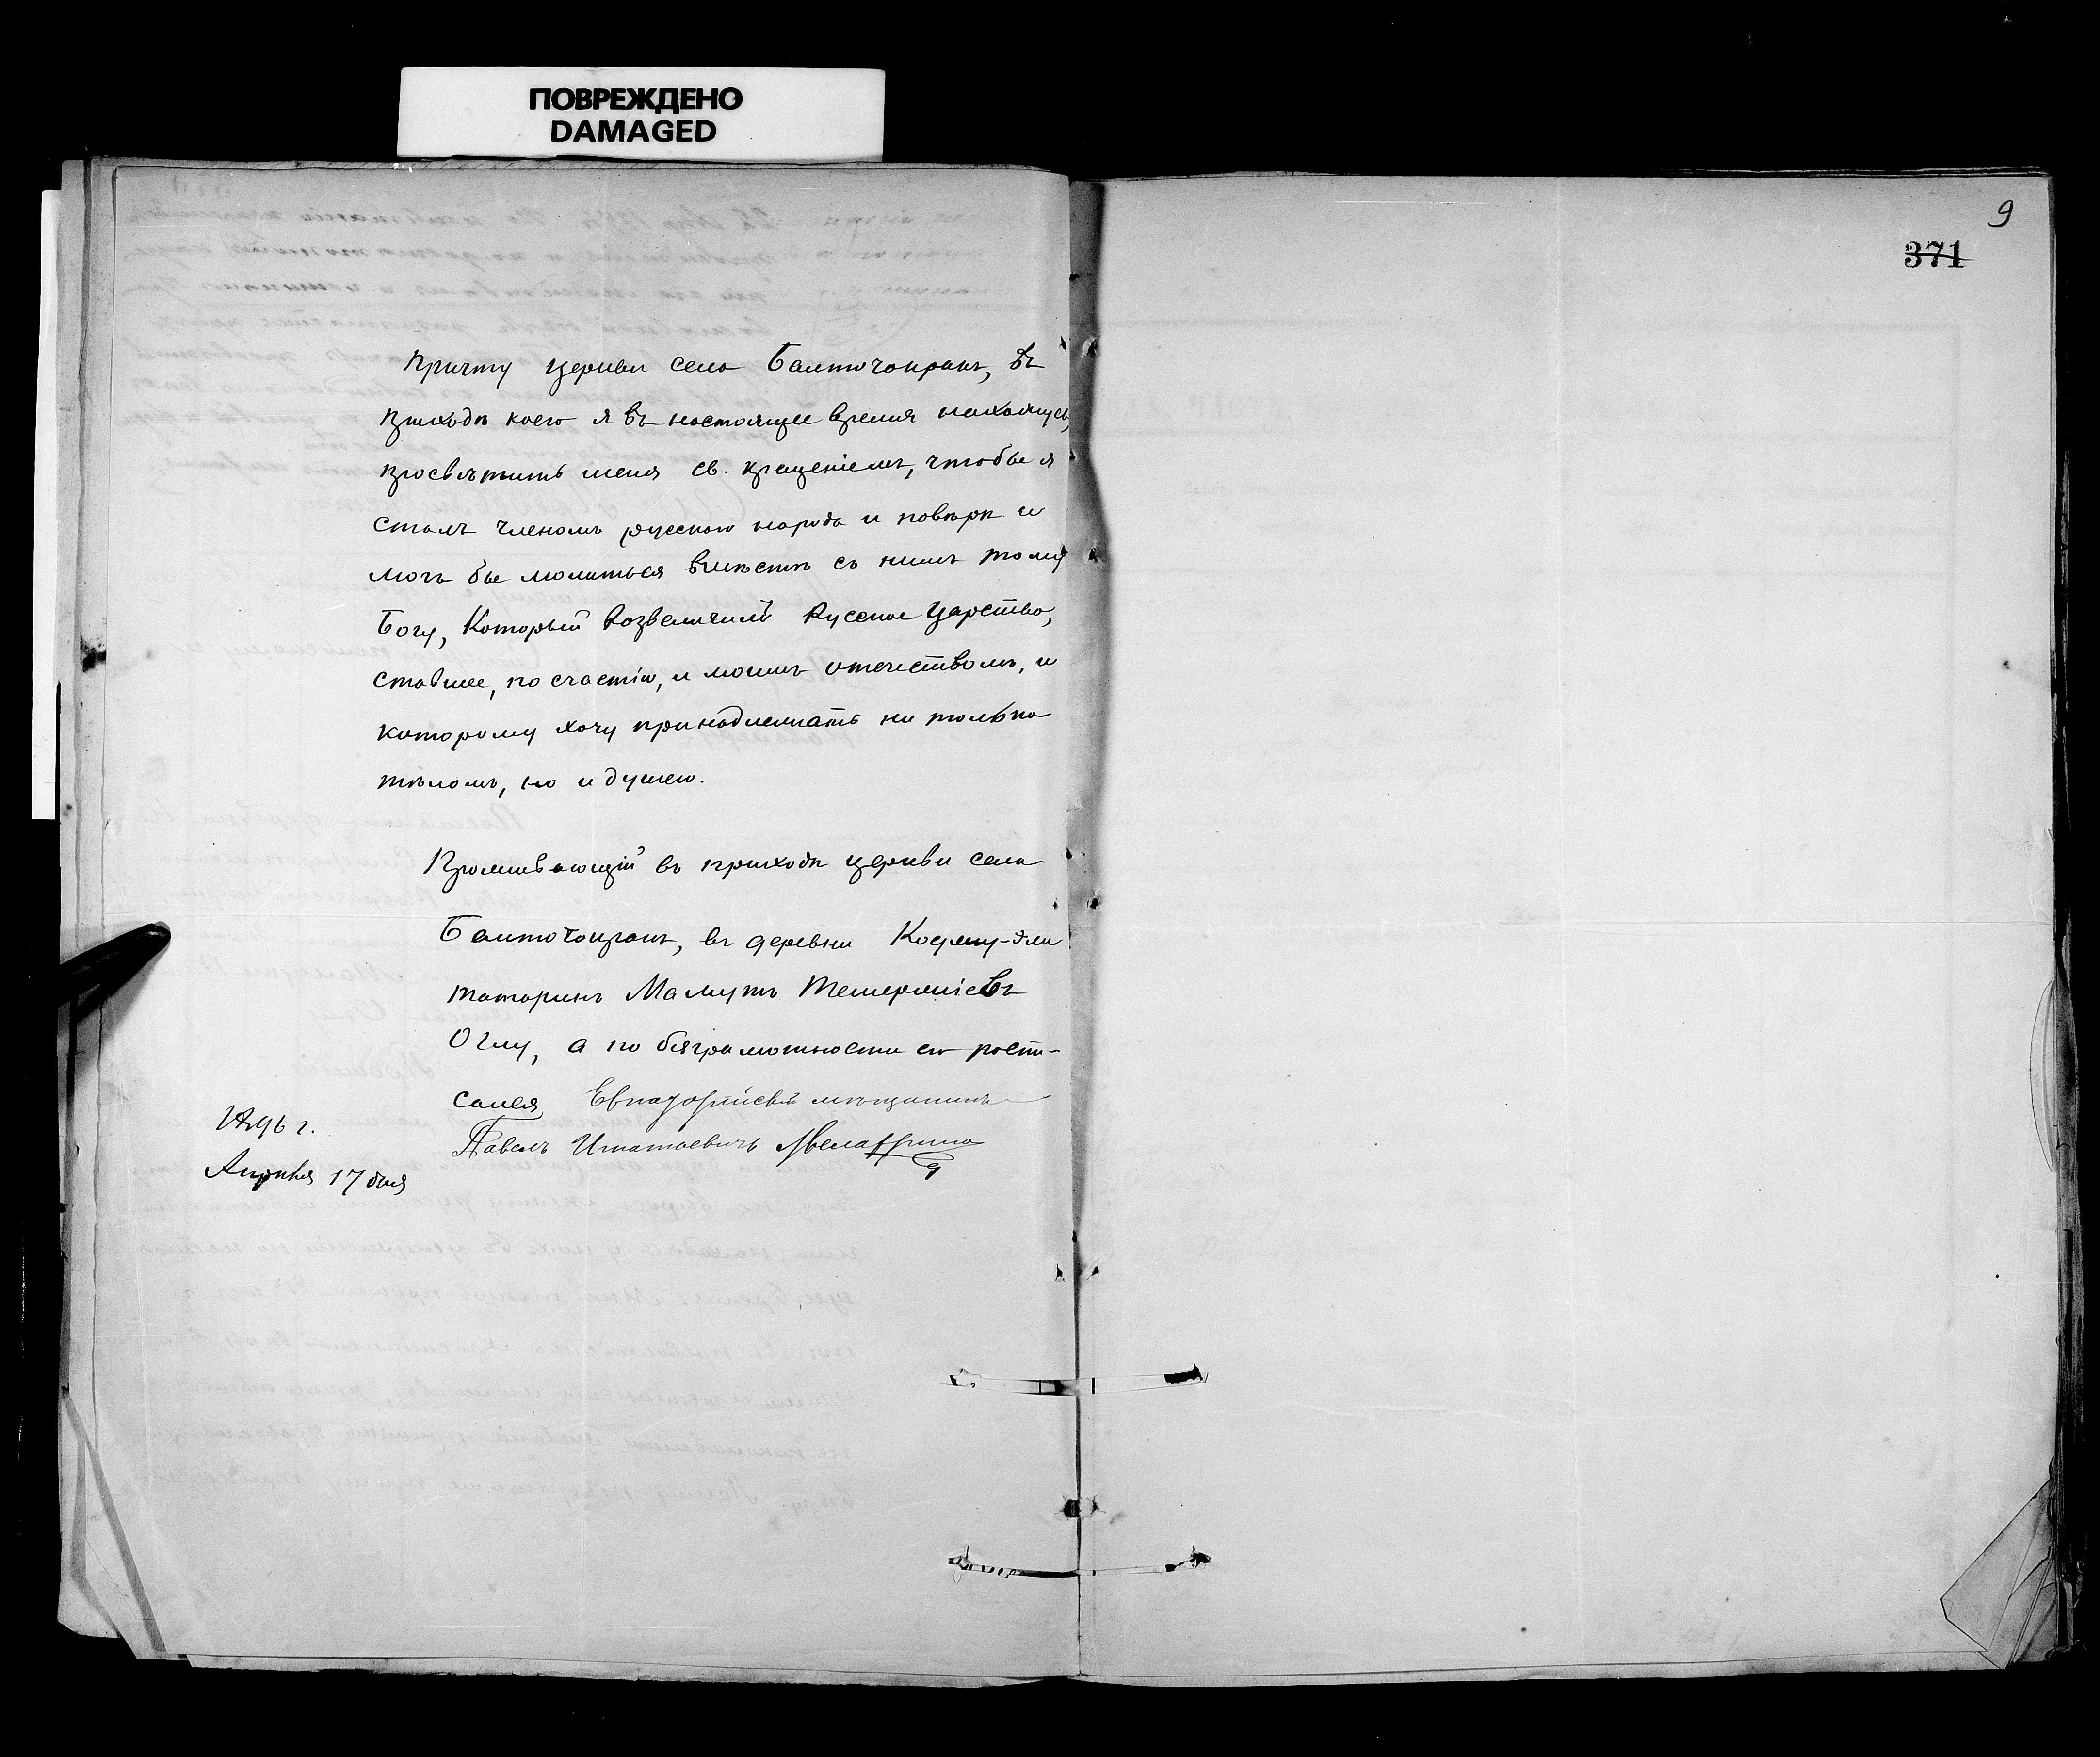 ПОВРЕЖДЕНО
DAMAGED
9
371
Причту церкви села Башточокракъ, въ
приходѣ коего я въ настоящее время нахожусь,
просвѣтить меня св. крещеніемъ, чтобы я
сталъ членомъ русскаго народа и по вѣрѣ и
могъ бы молиться вмѣстѣ съ нимъ тому
Богу, Который возвеличилъ Русское Царство,
ставшее, по счастію, и моимъ отечествомъ, и
которому хочу принадлежать не только
тѣломъ, но и душею.
Проживающій въ приходѣ церкви села
въ деревни
татаринъ Мамутъ
Оглу, а по безграмотности его роспи-
сался Евпаторійскій мѣщанинъ
Павелъ Игнатьевичъ
1896 г.
Апрѣля 17 дня